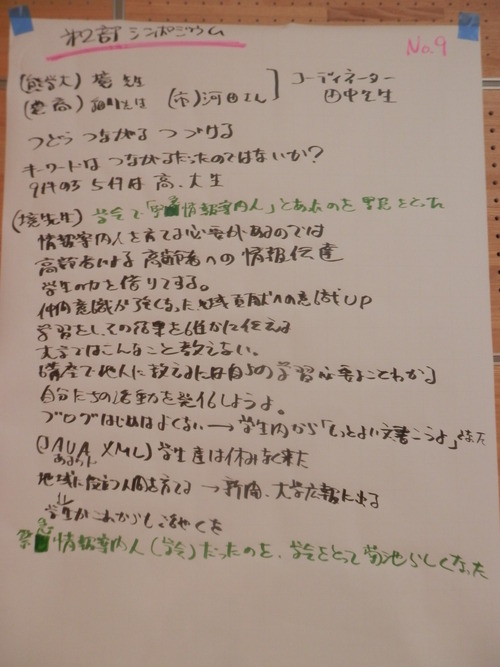 第2部 シンポジウム
No.9
(熊学大) 境 先生
コーディネーター
田中先生
(市) 河田さん
つどう つながる つづける
キーワードは つながるだったのではないか?
9件のうち5件は 高、大生
(境先生) 学会で「情報案内人」とあったのを
情報案内人を育てる必要があるのでは
高齢者による 高齢者への 情報伝達
学生の力を借りてする。
仲間意識が強くなった 地域貢献への意識UP
学習をしてその結果を確かに伝える
大学ではこんなこと教えない。
講座で他人に教えるには自らの学習必要なことわかる
自分たちの活動を発信しようよ。
ブログはじめはよくない → 学生内から「もっとよい文書こうよ」となった
(JAVA XML) 学生達は休みなく来た
地域に役立つ人間を育てる → 新聞、大学広報に出る
学生がこれから
情報案内人 (学会) だったのを、学会をとって 菊池らしくなった